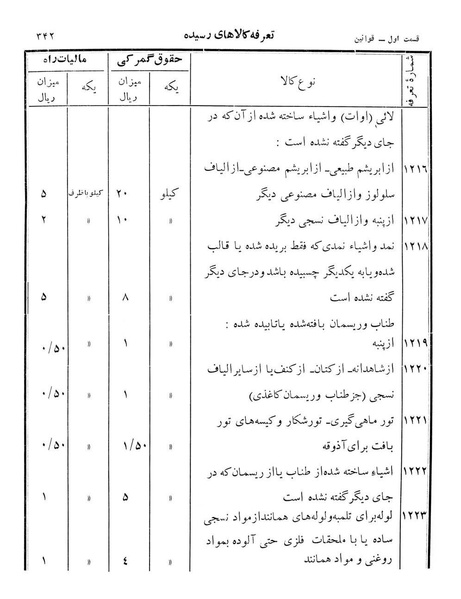 قسمت اول ـ قوانین تعرفه کالاهای رسیده ۳۴۲
شمارهٔ تعرفه نوع کالا حقوق گمرکی مالیات راه
یکه میزان ریال یکه میزان ریال
لائی (اوات) واشیاء ساخته شده از آن که در
جای دیگر گفته نشده است :
۱۲۱۶ ازابریشم طبیعی ـ ازابریشم مصنوعی ـ ازالیاف
سلولوز وازالیاف مصنوعی دیگر کیلو ۲۰ کیلو باظرف ۵
۱۲۱۷ ازپنبه وازالیاف نسجی دیگر » ۱۰ » ۲
۱۲۱۸ نمد واشیاء نمدی که فقط بریده شده یا قالب
شده و یا به یکدیگر چسبیده باشد و درجای دیگر
گفته نشده است » ۸ » ۵
طناب وریسمان بافته شده یا تابیده شده :
۱۲۱۹ ازپنبه » ۱ » ۰/۵۰
۱۲۲۰ ازشاهدانه ـ ازکتان ـ ازکنف یا ازسایرالیاف
نسجی (جز طناب وریسمان کاغذی) » ۱ » ۰/۵۰
۱۲۲۱ تور ماهی گیری ـ تورشکار وکیسه‌های تور
بافت برای آذوقه » ۱/۵۰ » ۰/۵۰
۱۲۲۲ اشیاء ساخته شده از طناب یا از ریسمان که در
جای دیگر گفته نشده است » ۵ » ۱
۱۲۲۳ لوله برای تلمبه ولوله‌های همانند از مواد نسجی
ساده یا با ملحقات فلزی حتی آلوده بمواد
روغنی و مواد همانند » ٤ » ۱